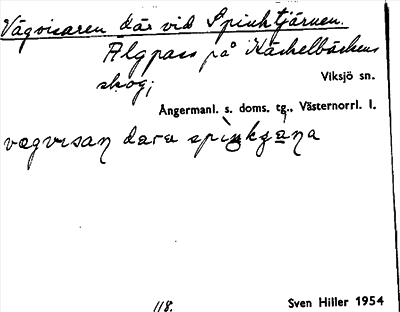 Vägvisaren där vid Spinktjärnen.
Älgpass på Käckelbäckens
skog;
Viksjö sn.
Ångermanl. s. doms. tg., Västernorrl. l.
vægvɪsan dæra spiŋkɟæna
118.
Sven Hiller 1954